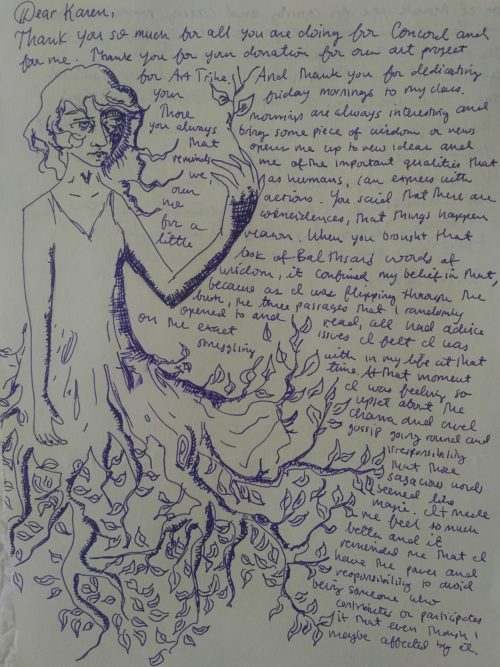 Dear Karen,
Thank you so much for all you are doing for Concord and
for me. Thank you for your donation for our art project
for Art Tribe. And thank you for dedicating
your friday mornings to my class.
Those mornings are always interesting and
you always bring some piece of wisdom or news
that opens me up to new ideas and
reminds me of the important qualities that
we, as humans, can express with
our actions. You said that there are
no coincidences, that things happen
for a reason. When you brought that
little book of Balthsar's words of
wisdom, it confirmed my belief in that,
because as I was flipping through the
book, the three passages that I randomly
opened to and read, all had advice
on the exact issives I felt I was
struggling with in my life at that
time. At that moment
I was feeling so
upset about the
drama and cruel
gossip going round and
irresponsibility
that those
sagacious words
seemed like
magic. It made
me feel so much
better and it
reminded me that I
have the power and
responsibility to avoid
being someone who
contributes or participates
it that even though I
maybe affected by it.